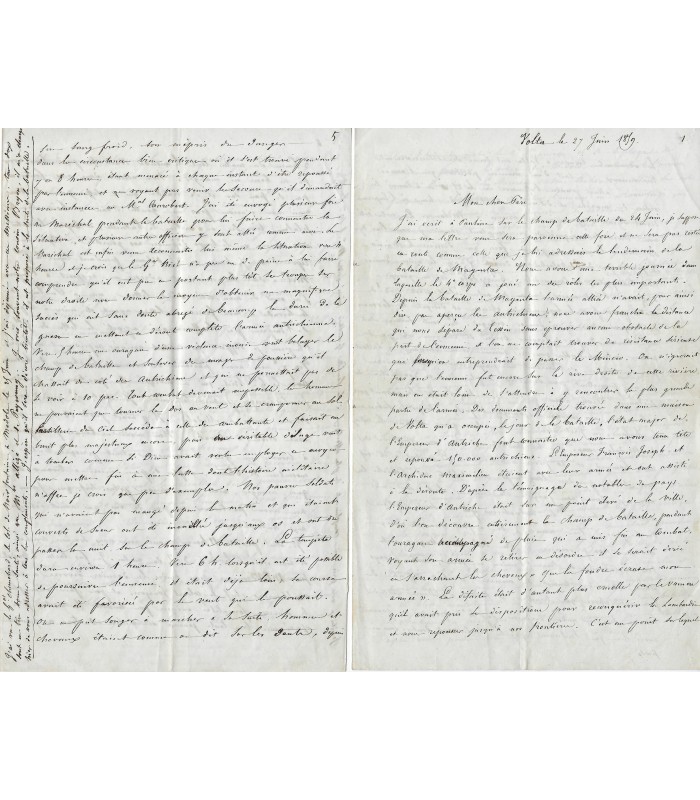 5
son sang froid, son mépris du danger
dans la circonstance bien critique où il s'est trouvé pendant
8 heures étant menacé à chaque instant d'être repoussé
par l'ennemi et ne voyant pas venir le secours qu'il demandait
avec instance au Mal Canrobert. J'ai été envoyé plusieurs fois
au Maréchal pendant la bataille pour lui faire connaitre la
situation et plusieurs autres officiers y sont allés comme moi. Le
Maréchal est enfin venu reconnaitre lui même la situation vers
heures et je crois que le Gal Niel n'a pas eu de peine à lui faire
comprendre qu'il eut pu en portant plus tôt ses troupes sur
notre droite nous donner le moyen d'obtenir un magnifique
succès qui eut sans doute abrégé de beaucoup la durée de la
guerre en mettant en déroute complète l'armée autrichienne.
Vers 5 heures un ouragan d'une violence inouie vint balayer le
champ de bataille et soulever des nuages de poussière qu'il
chassait du côté des Autrichiens et qui ne permettait pas de
se voir à 10 pas. Tout combat devenait impossible, les hommes
ne pouvaient que tourner le dos au vent et se cramponner au sol.
L'artillerie du Ciel succéda à celle des combattants et faisait un
bruit plus majestueux encore, puis un véritable déluge vint
à tomber comme si Dieu avait voulu employer ce moyen
pour mettre fin à une lutte dont l'histoire militaire
n'offre, je crois, que peu d'exemples. Nos pauvres soldats
qui n'avaient pas mangé depuis le matin et qui étaient
couverts de sueur ont été mouillés jusqu'aux os et ont dû
passer la nuit sur le champ de bataille. La tempête
dura environ 1 heure. Vers 6 h lorsqu'il eut été possible
de poursuivre l'ennemi il était déjà loin, sa retraite
avait été favorisée par le vent qui le poussait.
On ne put songer à marcher à sa suite, hommes et
chevaux étaient comme on dit sur les dents, depuis
Volta le 27 Juin 1859. 1
Mon cher Père
J'ai écrit à Pauline sur le champ de bataille du 24 Juin, je suppose
que ma lettre vous sera parvenue cette fois et ne sera pas restée
en route comme celle que je lui adressais le lendemain de la
bataille de Magenta. Nous avons eu une terrible journée dans
laquelle le 4e corps a joué un des rôles les plus importants.
Depuis la bataille de Magenta l'armée alliée n'avait, pour ainsi
dire, pas aperçu les autrichiens; nous avons franchi la distance
qui nous separe du Tessin sans éprouver aucun obstacle de la
part de l'ennemi et l'on ne comptait trouver de résistance sérieuse
que lorsqu'on entreprendrait de passer le Mincio. On n'ignorait
pas que l'ennemi fut encore sur la rive droite de cette rivière
mais on était loin de s'attendre à y rencontrer la plus grande
partie de l'armée. Des documents officiels trouvés dans une maison
de Volta qu'a occupée, le jour de la bataille, l'état major de
l'Empereur d'Autriche font connaitre que nous avons eu en tête
et repoussé 150.000 autrichiens. L'Empereur François Joseph et
l'Archiduc Maximilien étaient avec leur armée et ont assisté
à sa déroute. D'après le témoignage des notables du pays
l'Empereur d'Autriche était sur un point élevé de la ville
d'où l'on découvre entièrement le champ de bataille, pendant
l'ouragan accompagné de pluie qui a mis fin au combat.
Voyant son armée se retirer en désordre il se serait écrié
en s'arrachant les cheveux « Que la foudre écrase mon
armée ». La défaite était d'autant plus cruelle pour le vaincu
qu'ils avait pris ses dispositions pour reconquérir la Lombardie
et nous repousser jusqu'à nos frontières. C'est un point sur lequel